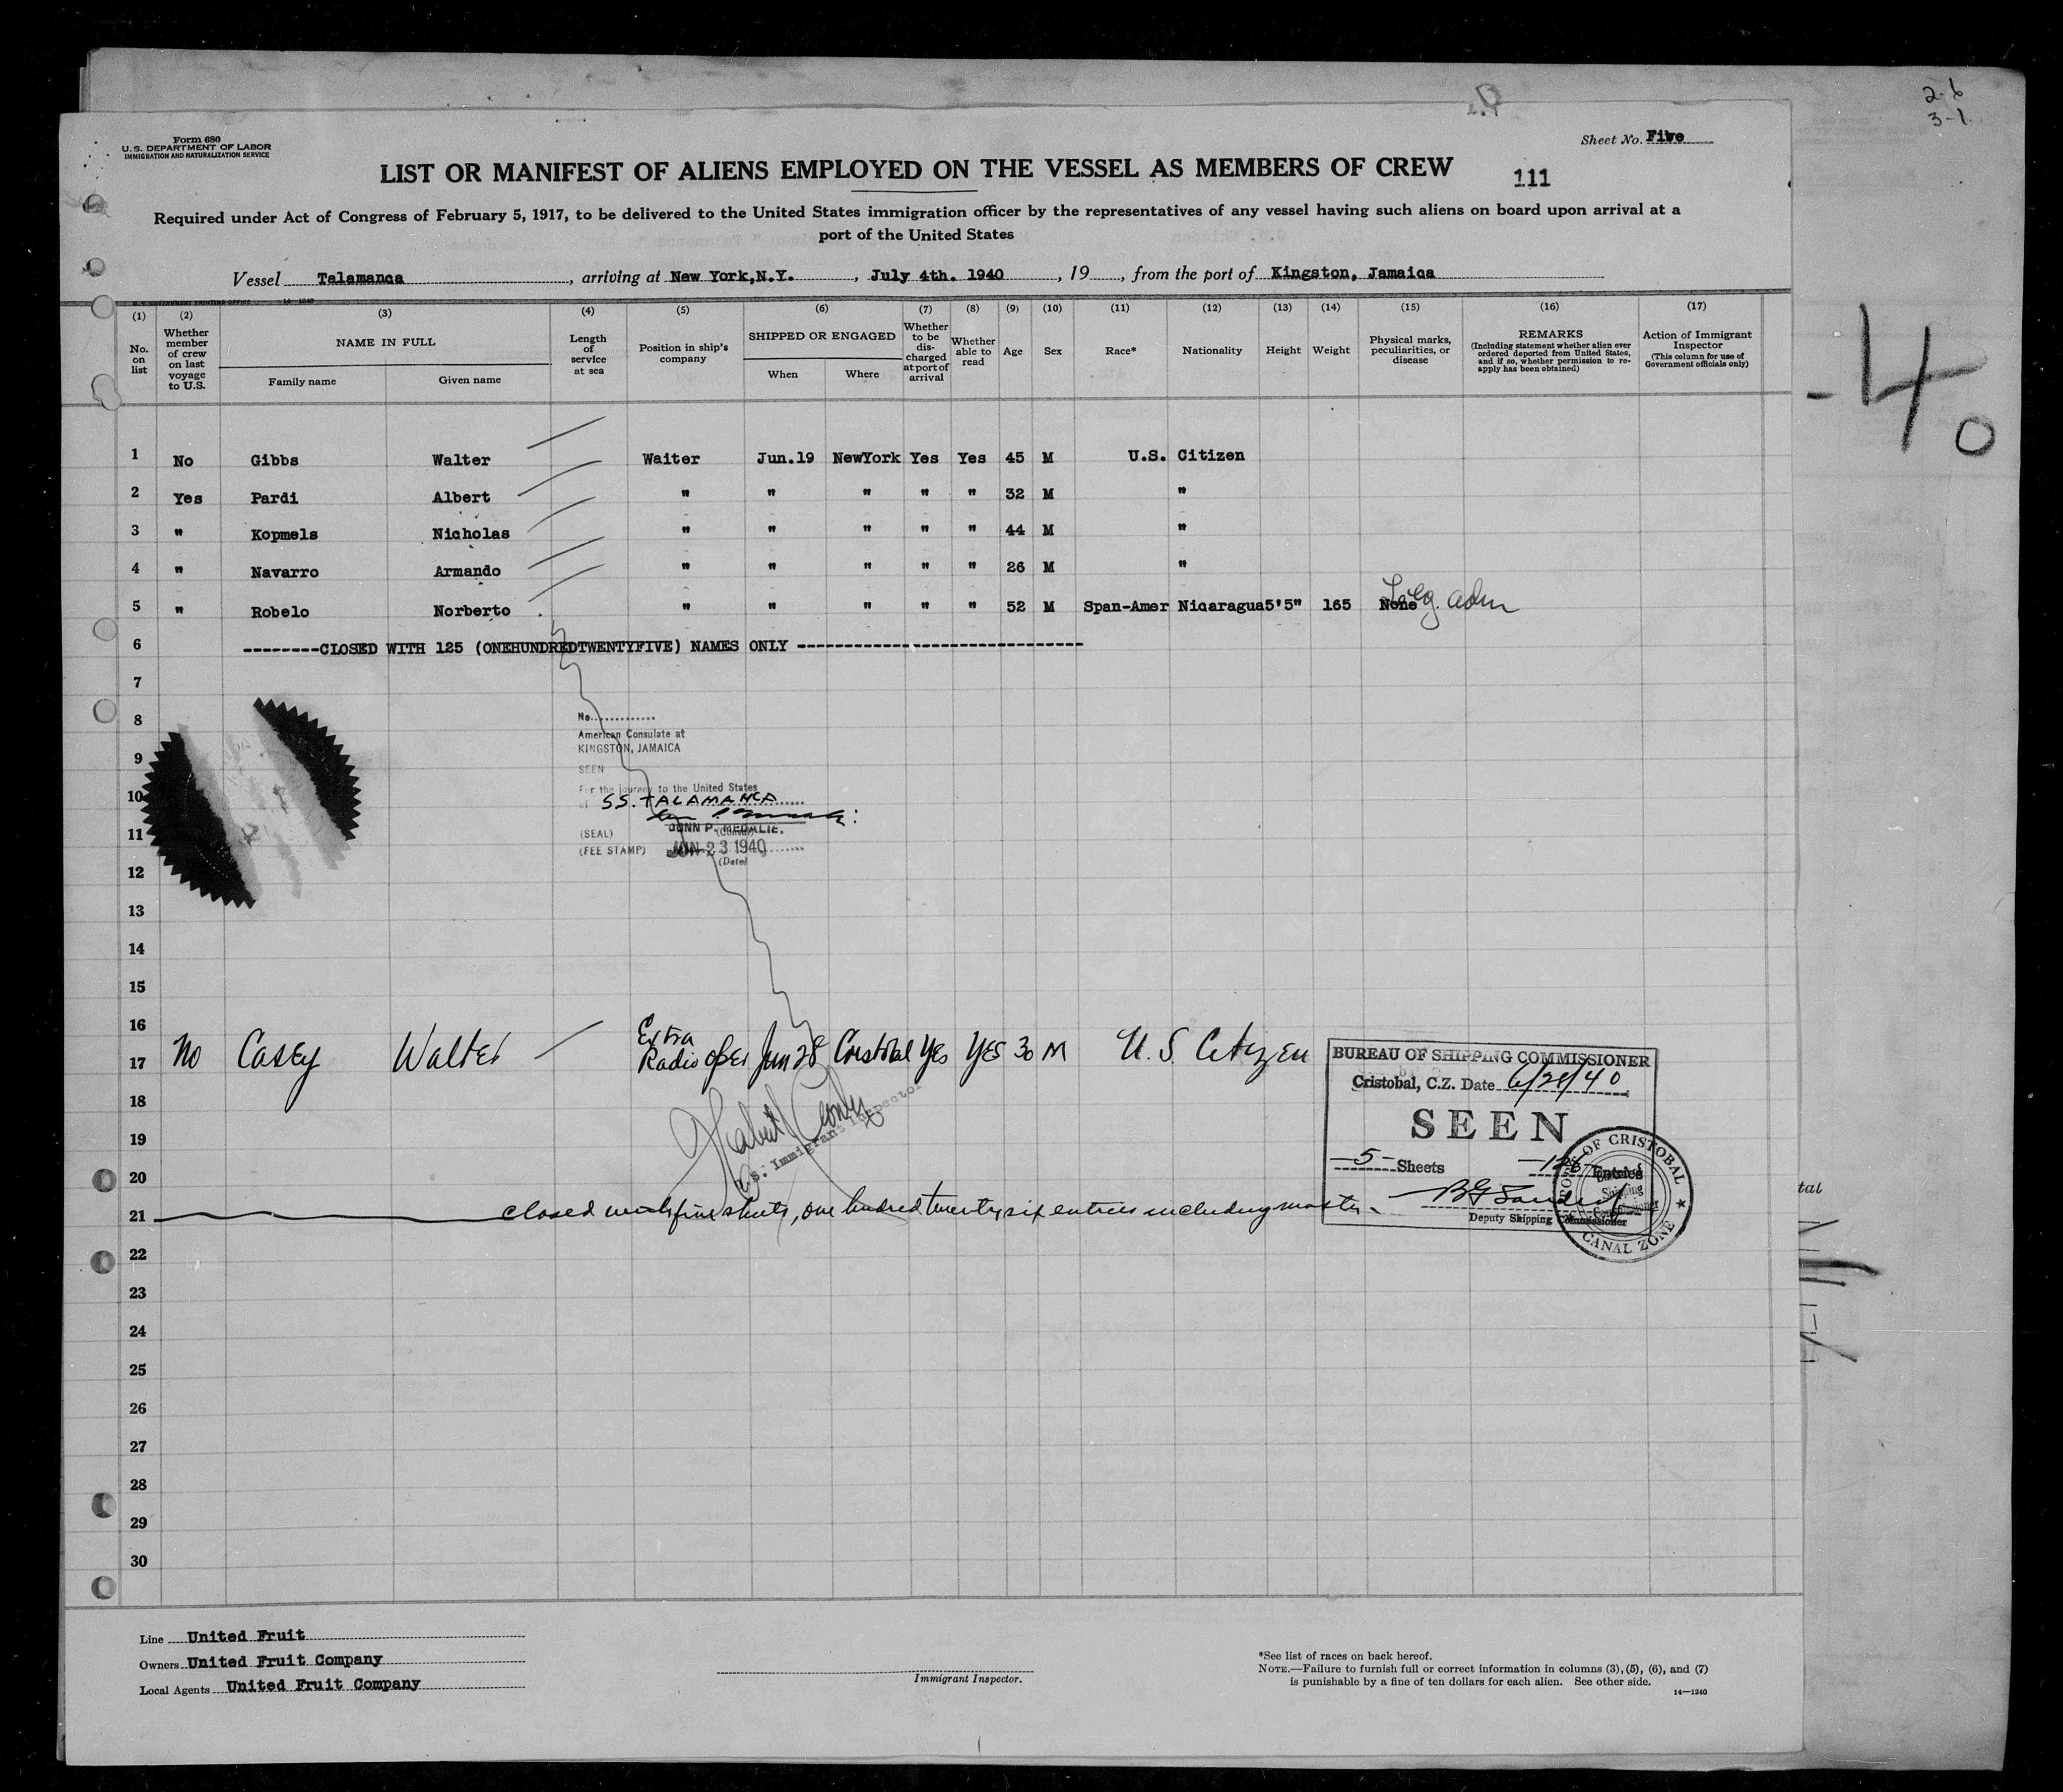 2-6
3-1
Form 680
U. S. DEPARTMENT OF LABOR
IMMIGRATION AND NATURALIZATION SERVICE
Sheet No. Five
LIST OR MANIFEST OF ALIENS EMPLOYED ON THE VESSEL AS MEMBERS OF CREW
111
Required under Act of Congress of February 5, 1917, to be delivered to the United States immigration officer by the representatives of any vessel having such aliens on board upon arrival at a
port of the United States
Vessel Talamanca, arriving at New York,N.Y., July 4th. 1940, 19, from the port of Kingston, Jamaica
-40
(1) (2) (3) (4) (5) (6) (7) (8) (9) (10) (11) (12) (13) (14) (15) (16) (17)
No. on list
Whether member of crew on last voyage to U.S.
NAME IN FULL
Family name
Given name
Length of service at sea
Position in ship's company
SHIPPED OR ENGAGED
When
Where
Whether to be discharged at port of arrival
Whether able to read
Age
Sex
Race*
Nationality
Height
Weight
Physical marks, peculiarities, or disease
REMARKS
(Including statement whether alien ever ordered deported from United States, and if so, whether permission to re-apply has been obtained)
Action of Immigrant Inspector
(This column for use of Government officials only)
1 No Gibbs Walter Waiter Jun.19 NewYork Yes Yes 45 M U.S. Citizen
2 Yes Pardi Albert " " " " " 32 M "
3 " Kopmels Nicholas " " " " " 44 M "
4 " Navarro Armando " " " " " 26 M "
5 " Robelo Norberto " " " " " 52 M Span-Amer Nicaragua 5'5" 165 None
6 --------CLOSED WITH 125 (ONEHUNDREDTWENTYFIVE) NAMES ONLY ------------------------------
7
8
9
10
11
12
13
14
15
16
No.
American Consulate at
KINGSTON, JAMAICA
SEEN
For the journey to the United States
of SS. TALAMANCA
JOHN P. MEDALIE.
(Consul)
(SEAL)
(FEE STAMP) JUN 23 1940
(Date)
17 No Casey Walter Extra Radio oper Jun 28 Cristobal Yes YES 30 M U.S. Citizen
18
19
20
U.S. Immigrant Inspector
21 closed with five sheets, one hundred twenty six entries including master.
22
23
24
25
26
27
28
29
30
BUREAU OF SHIPPING COMMISSIONER
Cristobal, C.Z. Date 6/28/40
SEEN
-5- Sheets -126- Entries
Deputy Shipping Commissioner
PORT OF CRISTOBAL
CANAL ZONE
tal
Line United Fruit
Owners United Fruit Company
Local Agents United Fruit Company
Immigrant Inspector.
*See list of races on back hereof.
NOTE.—Failure to furnish full or correct information in columns (3), (5), (6), and (7)
is punishable by a fine of ten dollars for each alien. See other side.
14—1240